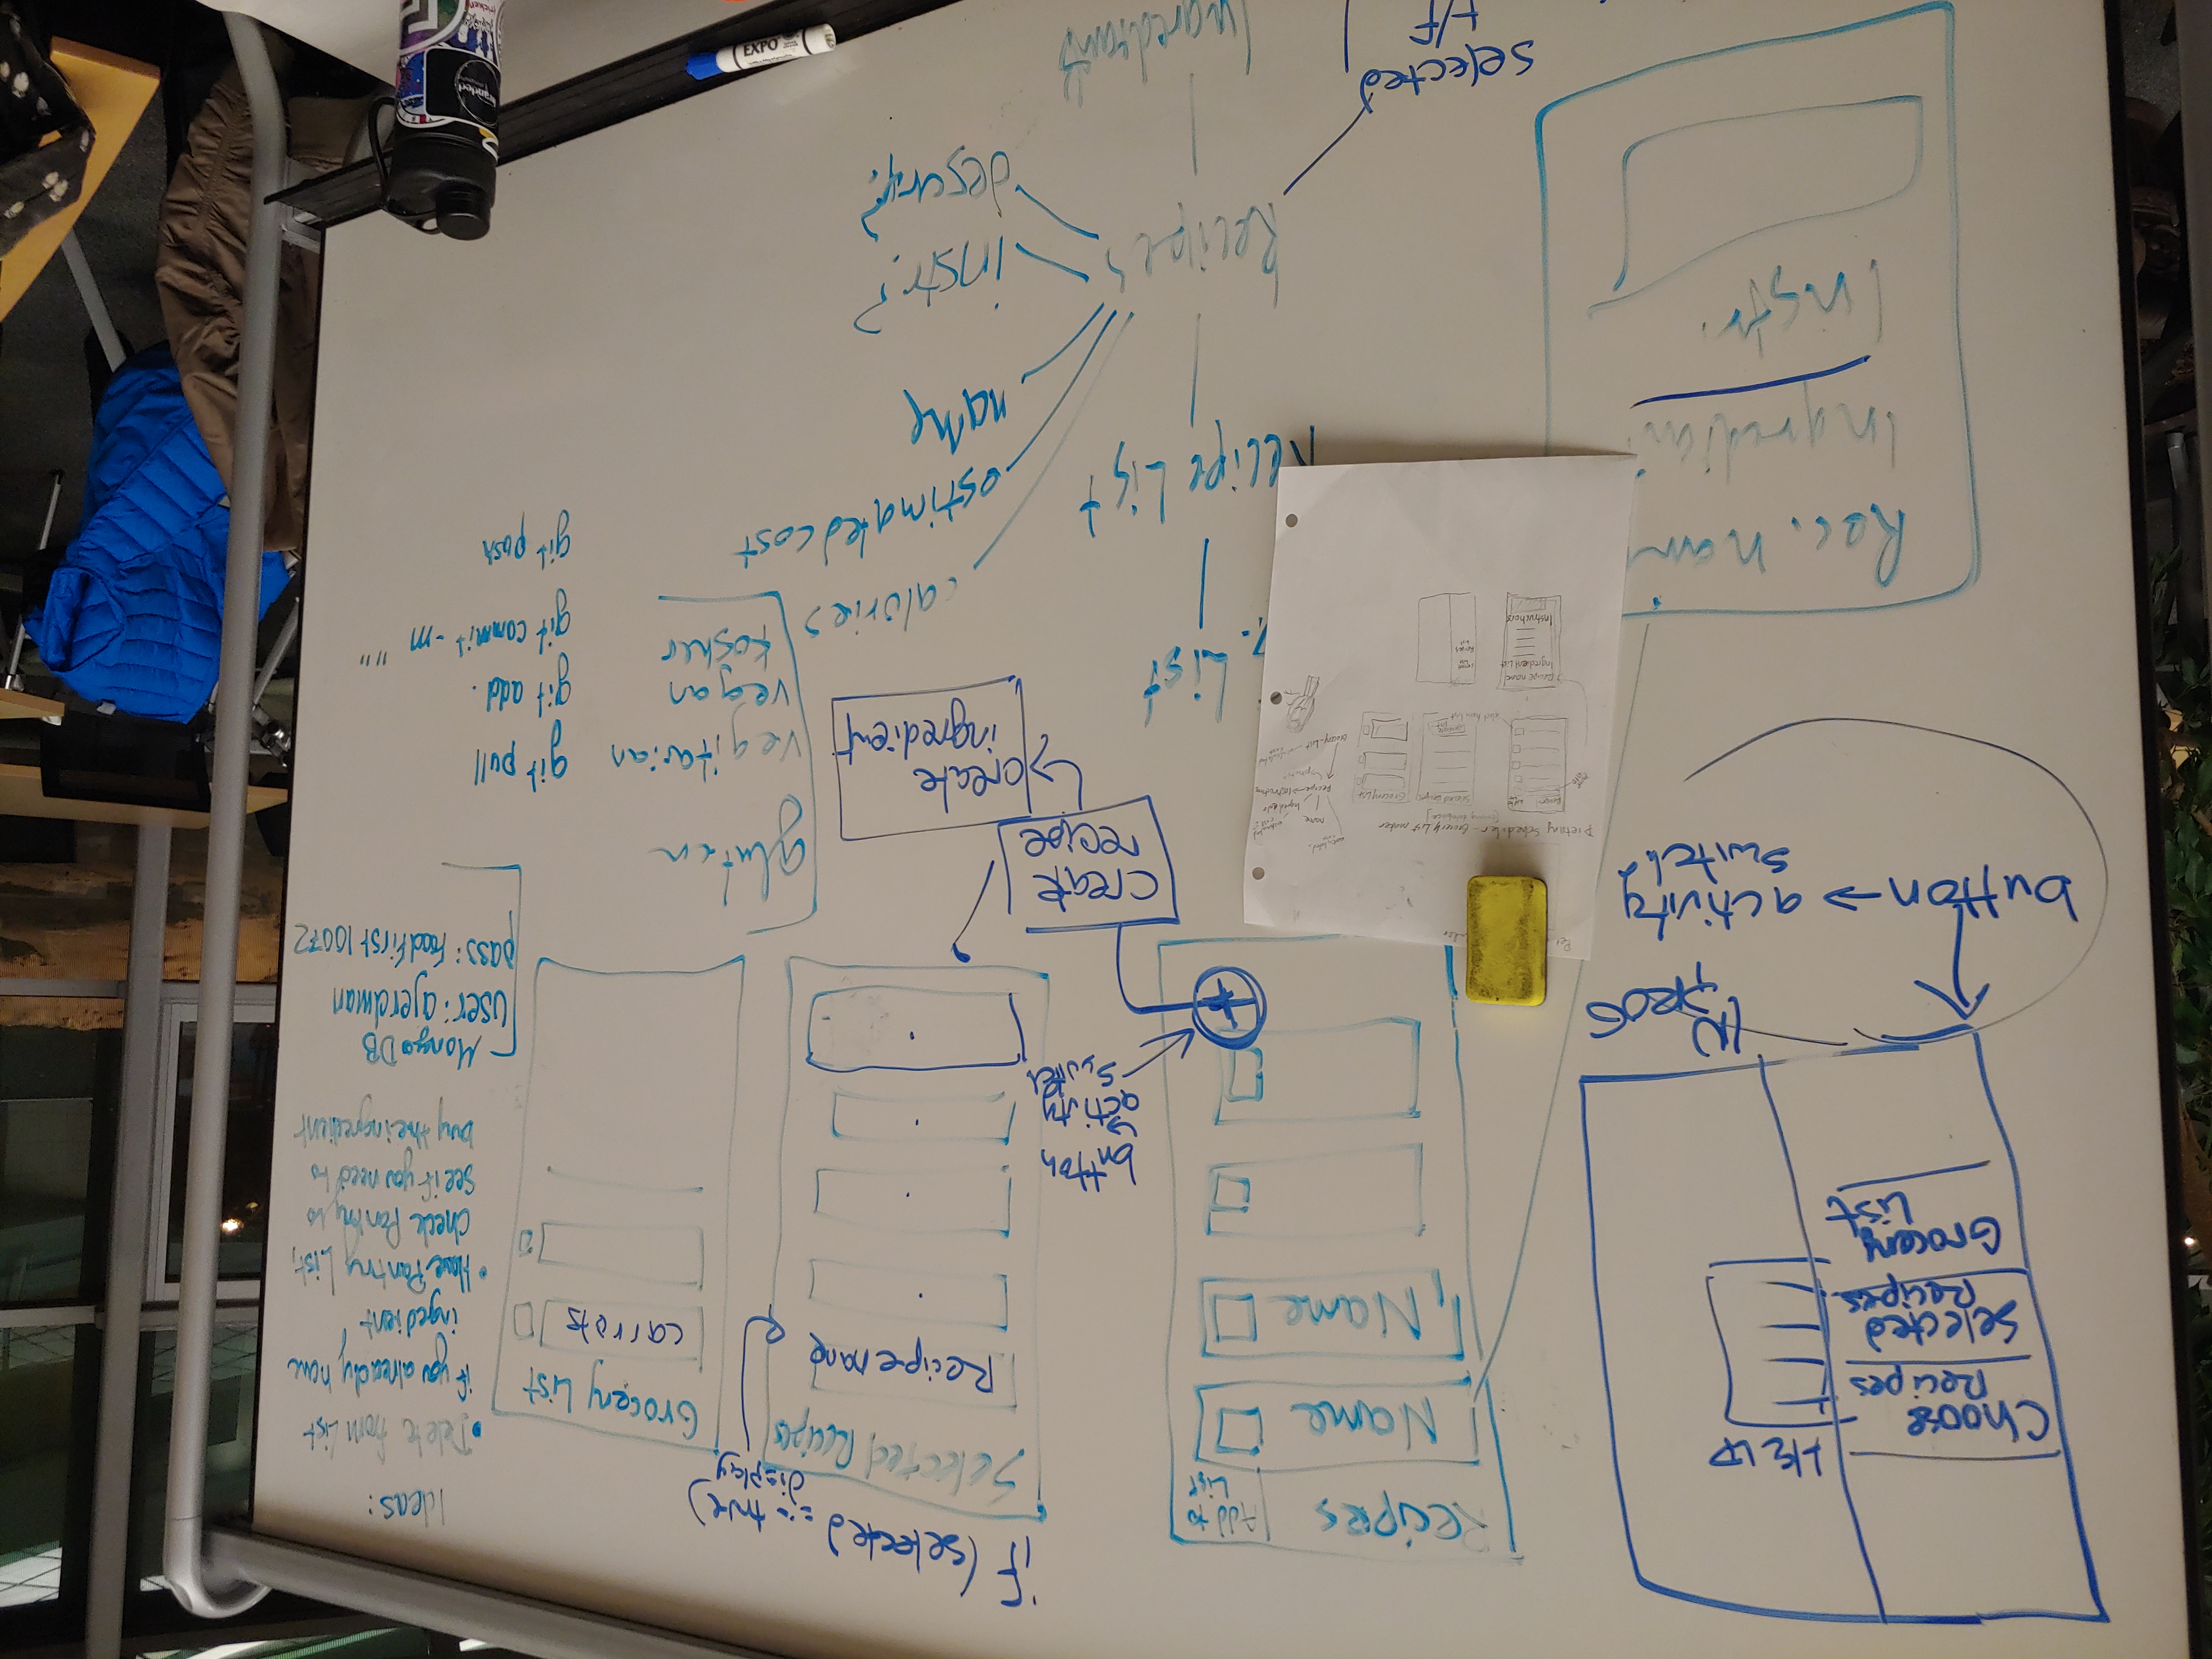 MENU
Choose
Recipes
Selected
Recipes
Grocery
List
IN
PROG
button → activity
switch?
Recipes
Add to
List
Name
Name
button
activity
switch
+
create
recipe
create
ingredient
if (selected
== true)
display
Selected Recipes
Recipe name
Grocery List
carrots
Ideas:
• Delete from List
if you already have
ingredient
• Have Pantry List,
check Pantry to
see if you need to
buy the ingredient
MongoDB
user: ajerdman
pass: FoodFirst10072
gluten
vegitarian
vegan
kosher
git pull
git add .
git commit -m " "
git push
Rec. nam
Instr.
List
Recipe List
Recipes
calories
estimated cost
name
instr?
descry?
selected
T/F
Dietary Scheduler - Grocery List maker
Grocery List
Recipe name
Ingredient List
Instructions
name
EXPO